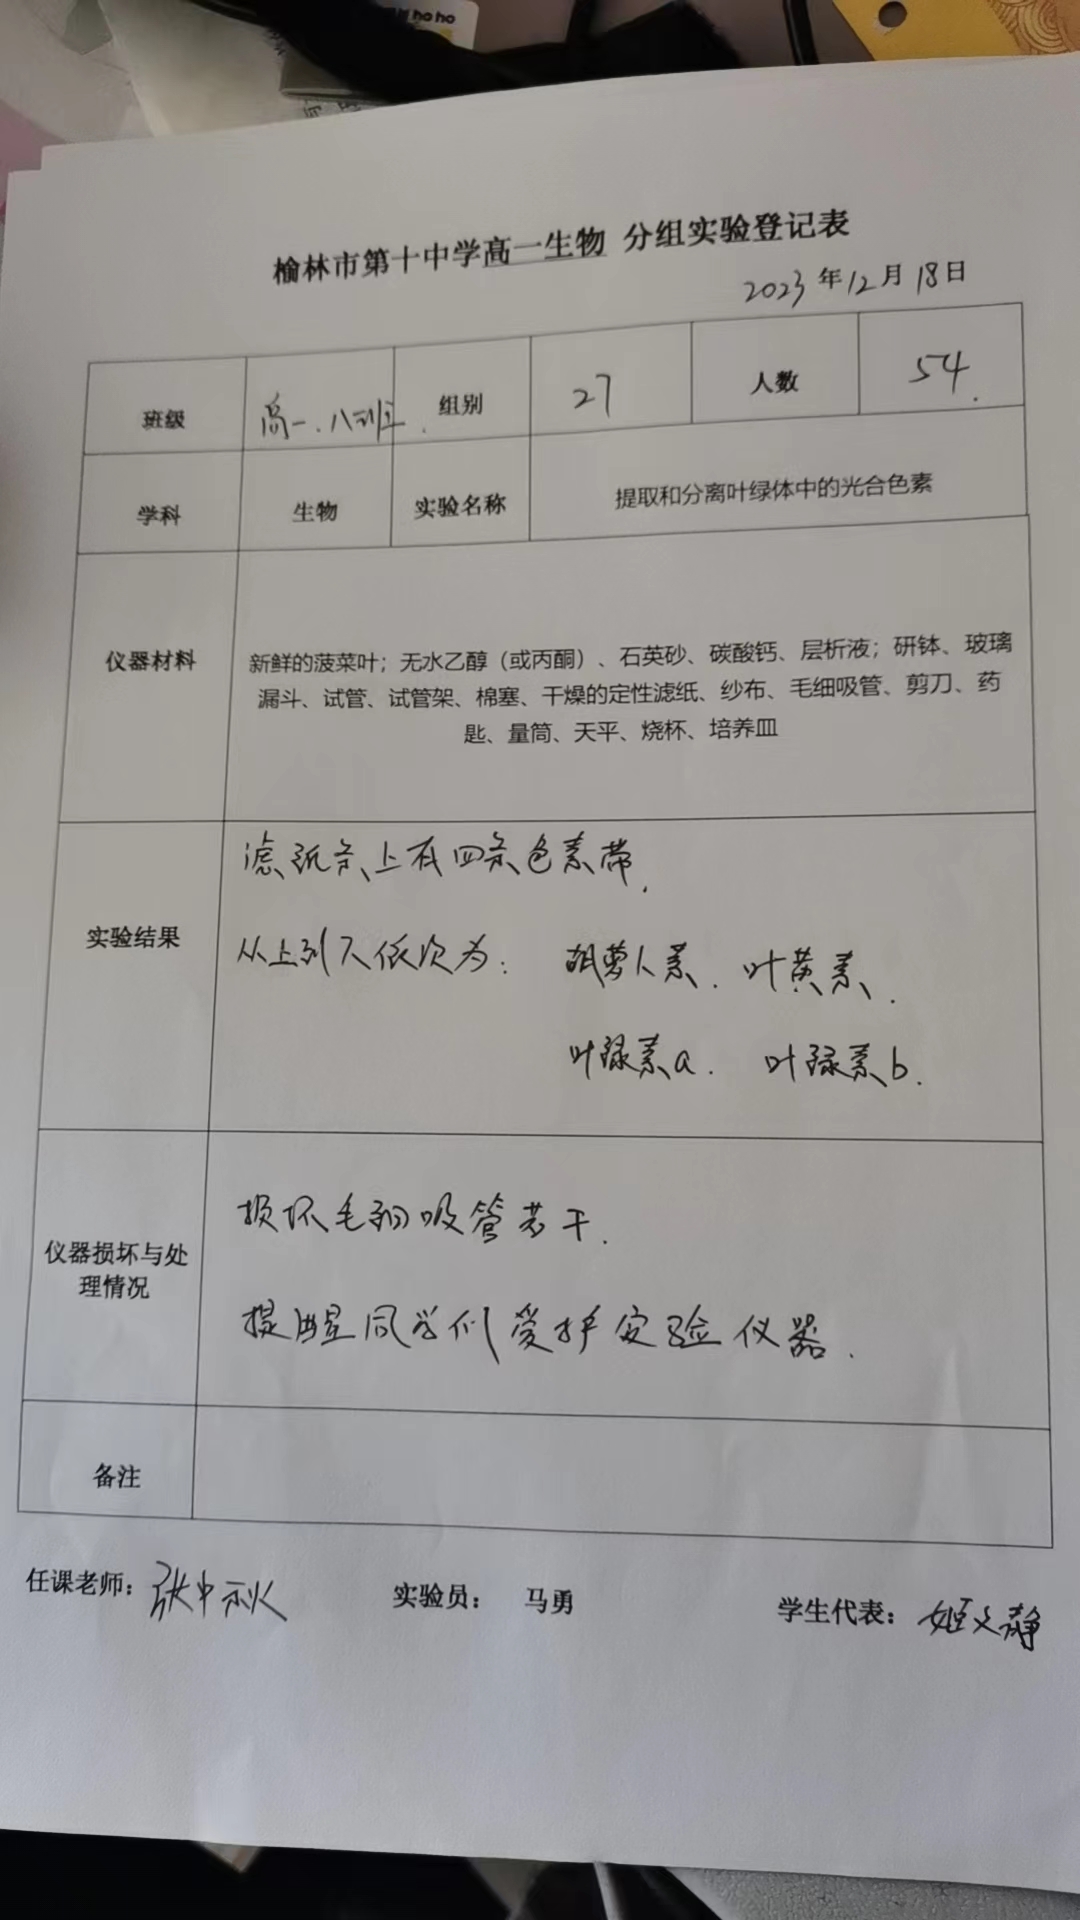 ho ho
榆林市第十中学高一生物 分组实验登记表
2023 年 12 月 18 日
班级 高一.八班. 组别 27 人数 54.
学科 生物 实验名称 提取和分离叶绿体中的光合色素
仪器材料
新鲜的菠菜叶；无水乙醇（或丙酮）、石英砂、碳酸钙、层析液；研钵、玻璃
漏斗、试管、试管架、棉塞、干燥的定性滤纸、纱布、毛细吸管、剪刀、药
匙、量筒、天平、烧杯、培养皿
实验结果
滤纸条上有四条色素带.
从上到下依次为: 胡萝卜素. 叶黄素.
叶绿素a. 叶绿素b.
仪器损坏与处
理情况
损坏毛细吸管若干.
提醒同学们爱护实验仪器.
备注
任课老师: 张中秋 实验员: 马勇 学生代表: 姬文静